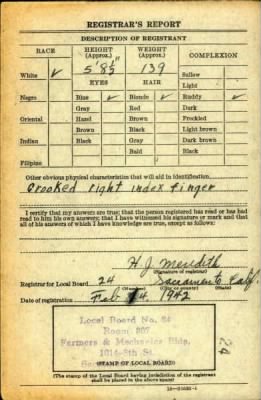 REGISTRAR'S REPORT
DESCRIPTION OF REGISTRANT
RACE HEIGHT (Approx.) WEIGHT (Approx.) COMPLEXION
White ✓ 5' 8½" 139 Sallow
EYES HAIR Light
Negro Blue ✓ Blonde ✓ Ruddy ✓
Gray Red Dark
Oriental Hazel Brown Freckled
Brown Black Light brown
Indian Black Gray Dark brown
Bald Black
Filipino
Other obvious physical characteristics that will aid in identification
Crooked right index finger
I certify that my answers are true; that the person registered has read or has had
read to him his own answers; that I have witnessed his signature or mark and that
all of his answers of which I have knowledge are true, except as follows:
H. J. Meredith
(Signature of registrar)
Registrar for Local Board 24 Sacramento Calif.
(Number) (City or county) (State)
Date of registration Feb 14 1942
Local Board No. 24
Room 207
Farmers & Mechanics Bldg.
1014-8th St.
(STAMP OF LOCAL BOARD)
24
(The stamp of the Local Board having jurisdiction of the registrant
shall be placed in the above space)